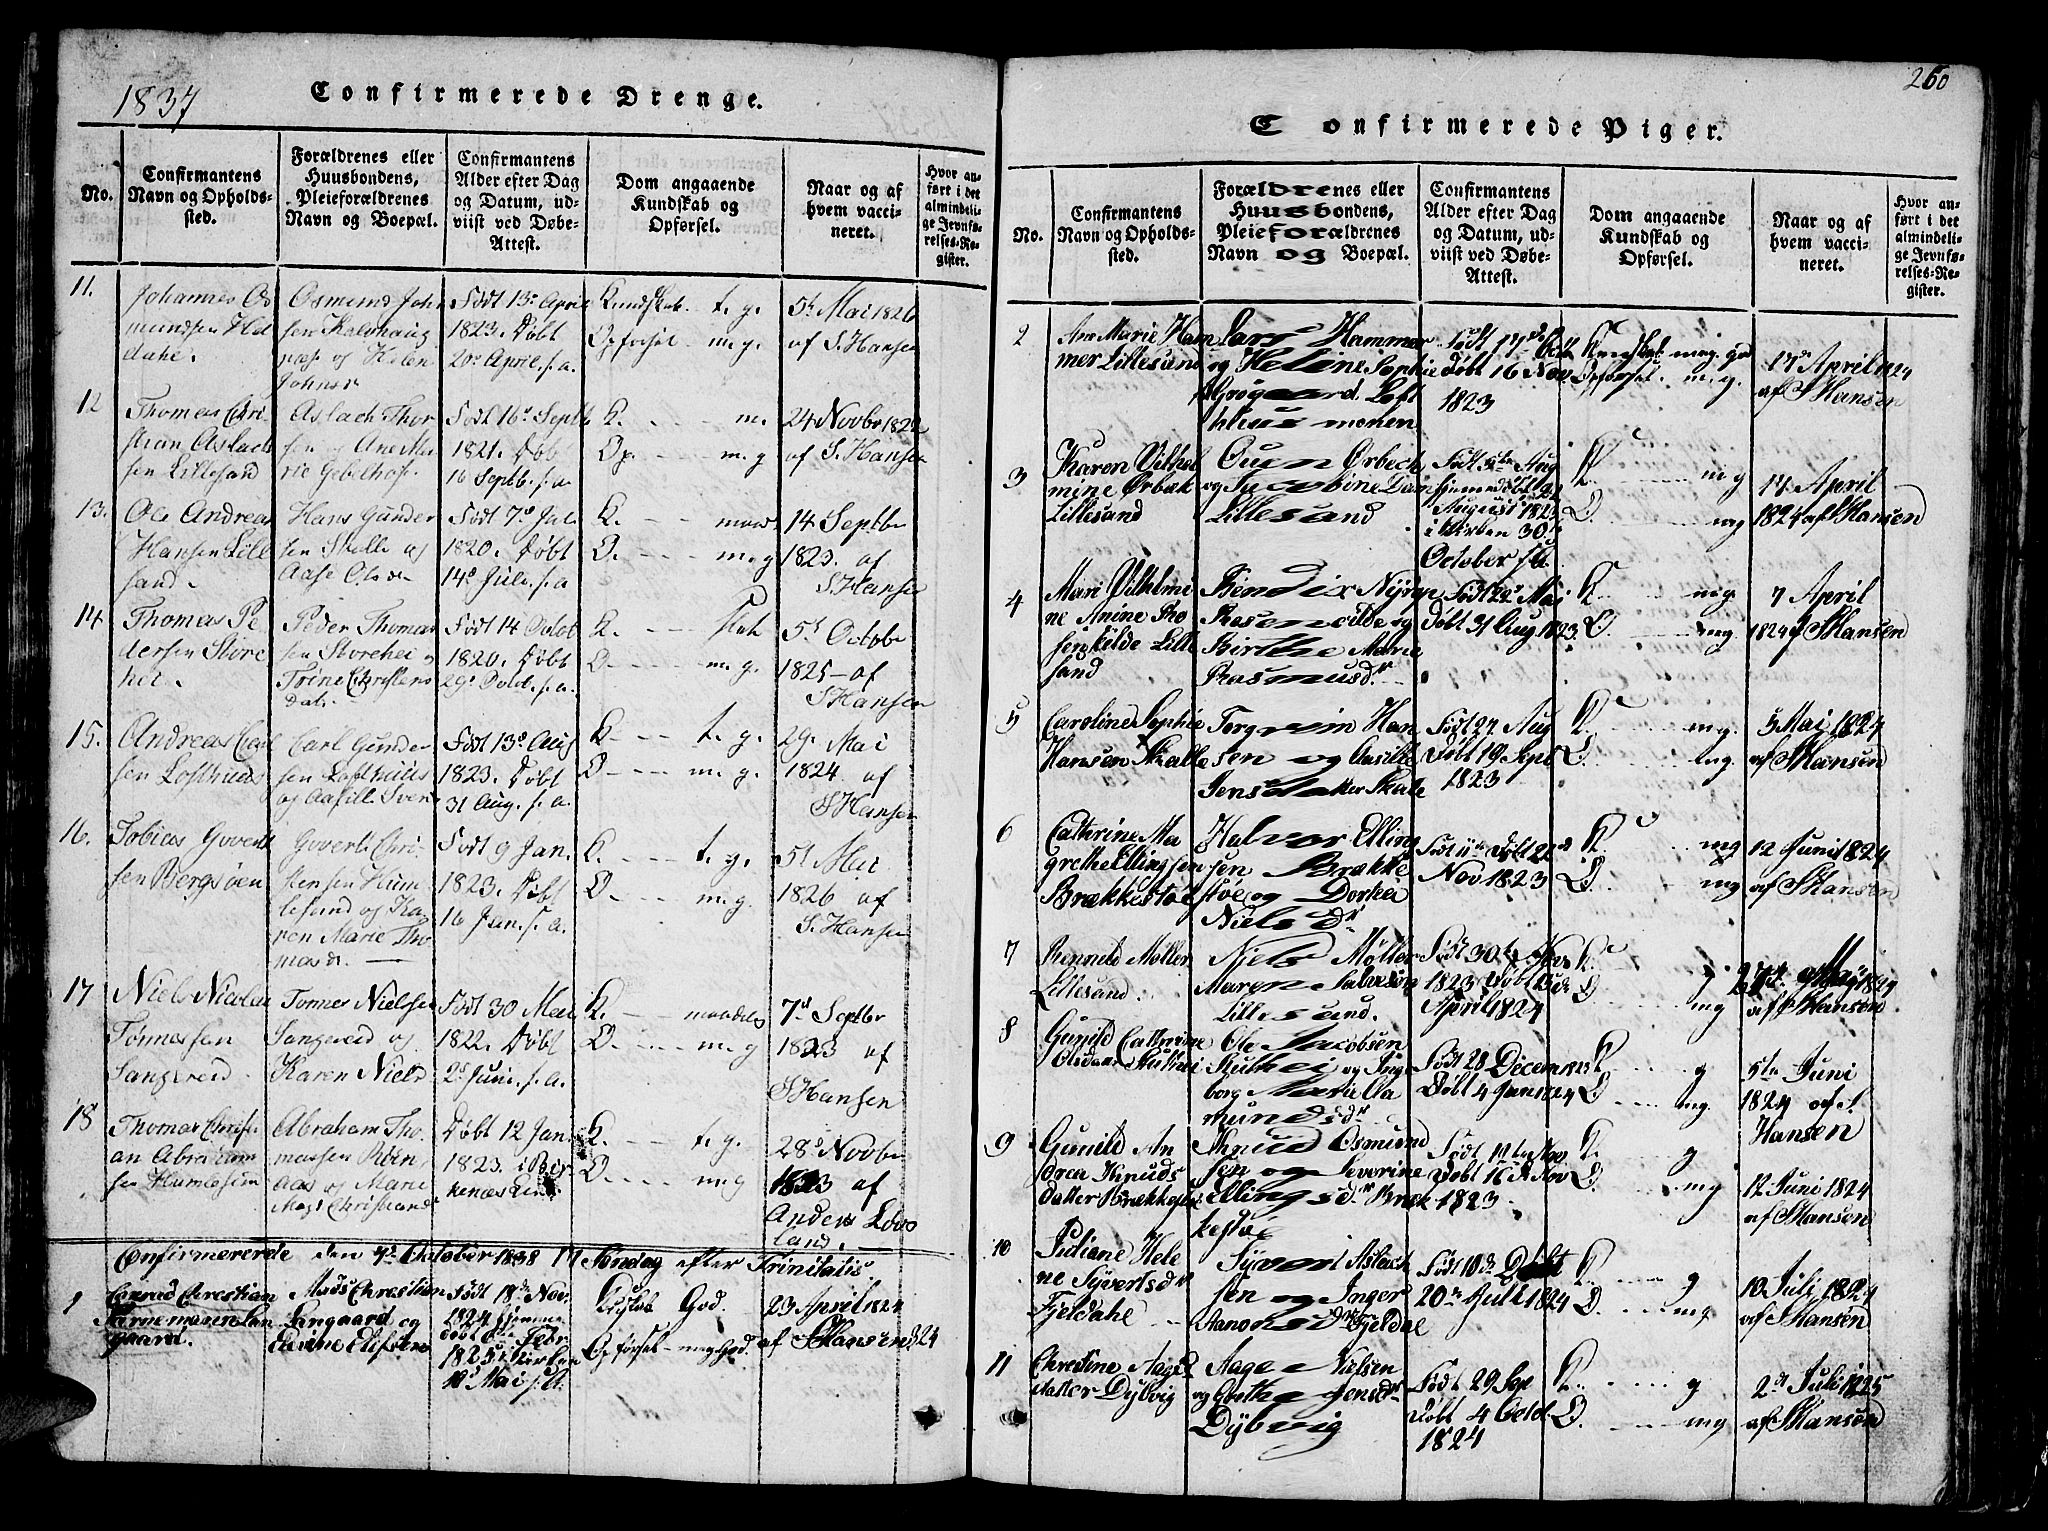 1837
Confirmerede Drenge.
No.
Confirmantens
Navn og Opholds-
sted.
Forældrenes eller
Huusbondens,
Pleieforældrenes
Navn og Boepæl.
Confirmantens
Alder efter Dag
og Datum, ud-
viist ved Døbe-
Attest.
Dom angaaende
Kundskab og
Opførsel.
Naar og af
hvem vacci-
neret.
Hvor an-
ført i det
almindeli-
ge Jevnfø-
relses-Re-
gister.
11.
Johannes Os
mundsen
dahl.
Osmund John
sen
og Helen
Født 13de April
1823. Døbt
20de April. s. a.
Kundskab. t. g.
Opførsel m. g.
5te Mai 1826
af S. Hansen
12
Thomas Chri
stian Aslach
sen Lillesand
Aslach Thor
sen og Ane Ma
rie
Født 16de Septb
1821. Døbt
16 Septb. s. a.
K. - - - m.
Op. - - m. g
24 Novbr 1822
af S. Hansen
13.
Ole Andreas
Hansen Lille
sand.
Hans Gunder
sen Skalle og
Aase Olsdr
Født 7de Jul
1820. Døbt
14de Juli. s. a
K. - - - maad.
O. - - - m. g
14 Septbr
1823. af
S Hansen
14
Thomas Pe
dersen Store
hei.
Peder Thomas
sen Storehei og
Trine Christens
datr.
Født 14 Octob
1820. Døbt
29de Octob. s. a.
K. - - -
O. - - - m. g.
5te Octobr
1825 - af
S Hansen
15.
Andreas Carl
sen Lofthuus
Carl Gunder
sen Lofthuus
og Aasill Sven
Født 13de Aug
1823. Døbt
31 Aug. s. a.
K. - - - t. g.
O - - - - m. g.
29. Mai
1824. af
S Hansen
16.
Tobias Govert
sen Bergsøen
Govert Chri
stensen Hum
lesund og Ka
ren Marie Tho
masdr.
Født 9 Jan.
1823. Døbt
16 Jan. s. a.
K. - - - t. g.
O. - - - m. g.
5te Mai
1826 af
S. Hansen
17
Niels Nicolai
Tønnessen
Sangereid
Tønnes Nielsen
Sangereid og
Karen Nielsd
Født 30 Mai
1822. Døbt
2de Juni. s. a.
K. - - - maadel
O. - - - m. g
7de Septbr
1823 af
S Hansen
18
Thomas Christi
an Abraham
sen Humlesun
Abraham Tho
massen
og Marie
Døbt 12 Jan
1823. i Bir
kenæs
K. - - - t. g.
O. - - - m. g
28de Novbr
1823 af
Anders Løvs
land.
Confirmererede den 7de October 1838 17 Søndag efter Trinitatis
1
Conrad Christian
gaard.
Mads Christian
Langaard og
Født 18de Nov.
1824 hjemme
døbt 6te Febr
1825 i Kirken
10de Mai s. A.
Kundskab God.
Opførsel - meg God.
23 April 1824
af S Hansen
260
Confirmerede Piger.
No.
Confirmantens
Navn og Opholds-
sted.
Forældrenes eller
Huusbondens,
Pleieforældrenes
Navn og Boepæl.
Confirmantens
Alder efter Dag
og Datum, ud-
viist ved Døbe-
Attest.
Dom angaaende
Kundskab og
Opførsel.
Naar og af
hvem vacci-
neret.
Hvor an-
ført i det
almindeli-
ge Jevnfø-
relses-Re-
gister.
2
Ane Marie Ham
mer Lillesand
Lars Hammer
og Heline Sophie
Grøgaard Loft
huusmonen
Født 17de Octb
Døbt 16 Nov
1823
Kundskab meg. god
Opførsel. m. g.
17de April 1824
af S Hansen
3
Karen Vilhel
mine Ørbek
Lillesand
Ouen Ørbech
og Jacobine Dan
Lillesand
Født 5te Aug
hjemmedøbt 22
August 1823
i Kirken 30te
October s A.
K. - - - m g
O. - - - m g
17 April
1824 af S Hansen
4
Mari Vilhelmi
ne Amine Ro
senkilde Lille
sand
Bendix Nyrop
Rosenkilde og
Birthe Marie
Rasmusdr
Født 22de Mai
Døbt 31 Aug 1823.
K - - - m g
O. - - - m g.
7 April
1824 af S Hansen
5
Caroline Sophie
Hansen Skalle
Torgrim Han
sen og Aasille
Jensdatter Skale
Født 24 Aug
Døbt 19 Sept
1823
K - - - m g.
O. - - - m g.
5 Mai 1824
af S Hansen
6
Cathrine Ma
grethe Ellingsen
Brækkestøe
Halvor Elling
sen Brække
støe og Dorthea
Nielsdr
Født 11te Døbt 22de
Nov 1823
K - - - m g
O. - - - m g
12 Juni 1824
af S Hansen
7
Rennild Møller
Lillesand.
Niels Møller
Maren Salvesen
Lillesand.
Født 30te Nov
1823 Døbt
April 1824
K - - - g
O - - - m g
27de Mai 1824
af S Hansen
8
Gunild Cathrine
Olsdaar
Ole Jacobsen
og Inge
borg Marie Aa
mundsdr
Født 28 Decem 1823
Døbt 4 Jan 1824
K - - - g
O. - - - m g.
5te Juni
1824 af S.
Hansen
9
Gunild An
drea Knuds
datter Brækkestøe
Knud Osmund
sen og Severine
Ellingsdr Bræk
kestøe
Født 11te Nov
Døbt 16de Nov
1823
K. - - - g
O. - - - m g.
12 Juni 1824
af S Hansen
10
Juliane Hele
ne Syvertsdr
Fjeldahl
Syvert Aslach
sen og Inger
Fjeldal
Født 10de Døbt
20de Juli 1824
K - - - g
O. - - - m g.
10 Juli 1824
af S Hansen
11
Christine Aages
datter Dybvig
Aage Nielsen
og Jensdr
Dybvig
Født 29 Sep
Døbt 4 Octob.
1824
K. - - - g
O. - - - m g
2de Juli 1825
af S Hansen